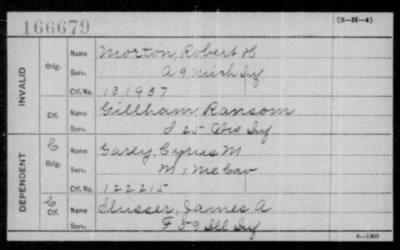 166679
(3-H-4)
INVALID
Orig. Name Morton, Robert H
Serv. A 9 Mich Inf
Ctf. No. 131937
Ctf. Name Gillham, Ransom
Serv. I 25 Wis Inf
DEPENDENT
C Orig. Name Garey, Cyrus M
Serv. M 1 Me Cav
Ctf. No. 122215
C Ctf. Name Slusser, James A
Serv. F 59 Ill Inf